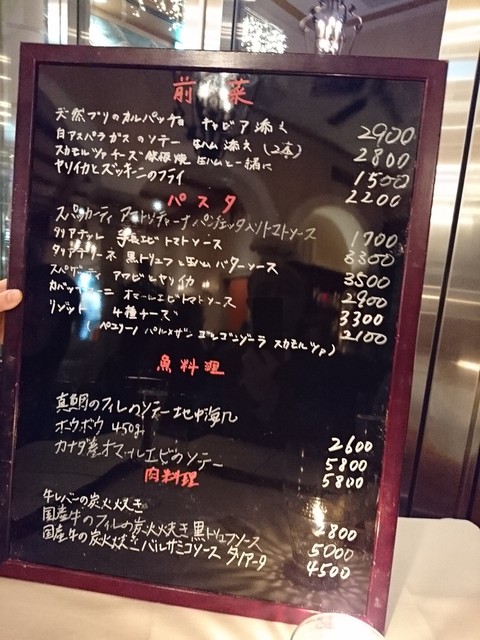 前菜
天然ブリのカルパッチョ キャビア添え 2900
白アスパラガスのソテー 生ハム添え(2本) 2800
スカモルツァチーズ鉄板焼 生ハムと一緒に 1500
ヤリイカとズッキーニのフライ 2200
パスタ
スパゲティ アマトリチャーナ パンチェッタ入りトマトソース 1700
タリアテッレ 手長エビトマトソース 3300
タリアリーネ 黒トリュフと生ハム バターソース 3500
スパゲティ アワビとヤリイカ 2900
オマールエビトマトソース 3300
リゾット 4種チーズ 2100
(ペコリーノ パルメザン ゴルゴンゾーラ スカモルツァ)
魚料理
真鯛のフィレのソテー地中海風 2600
ホウボウ 450g 5800
カナダ産オマールエビのソテー 5800
肉料理
牛レバーの炭火焼き 2800
国産牛のフィレの炭火焼き黒トリュフソース 5000
国産牛の炭火焼きバルサミコソース タリアータ 4500